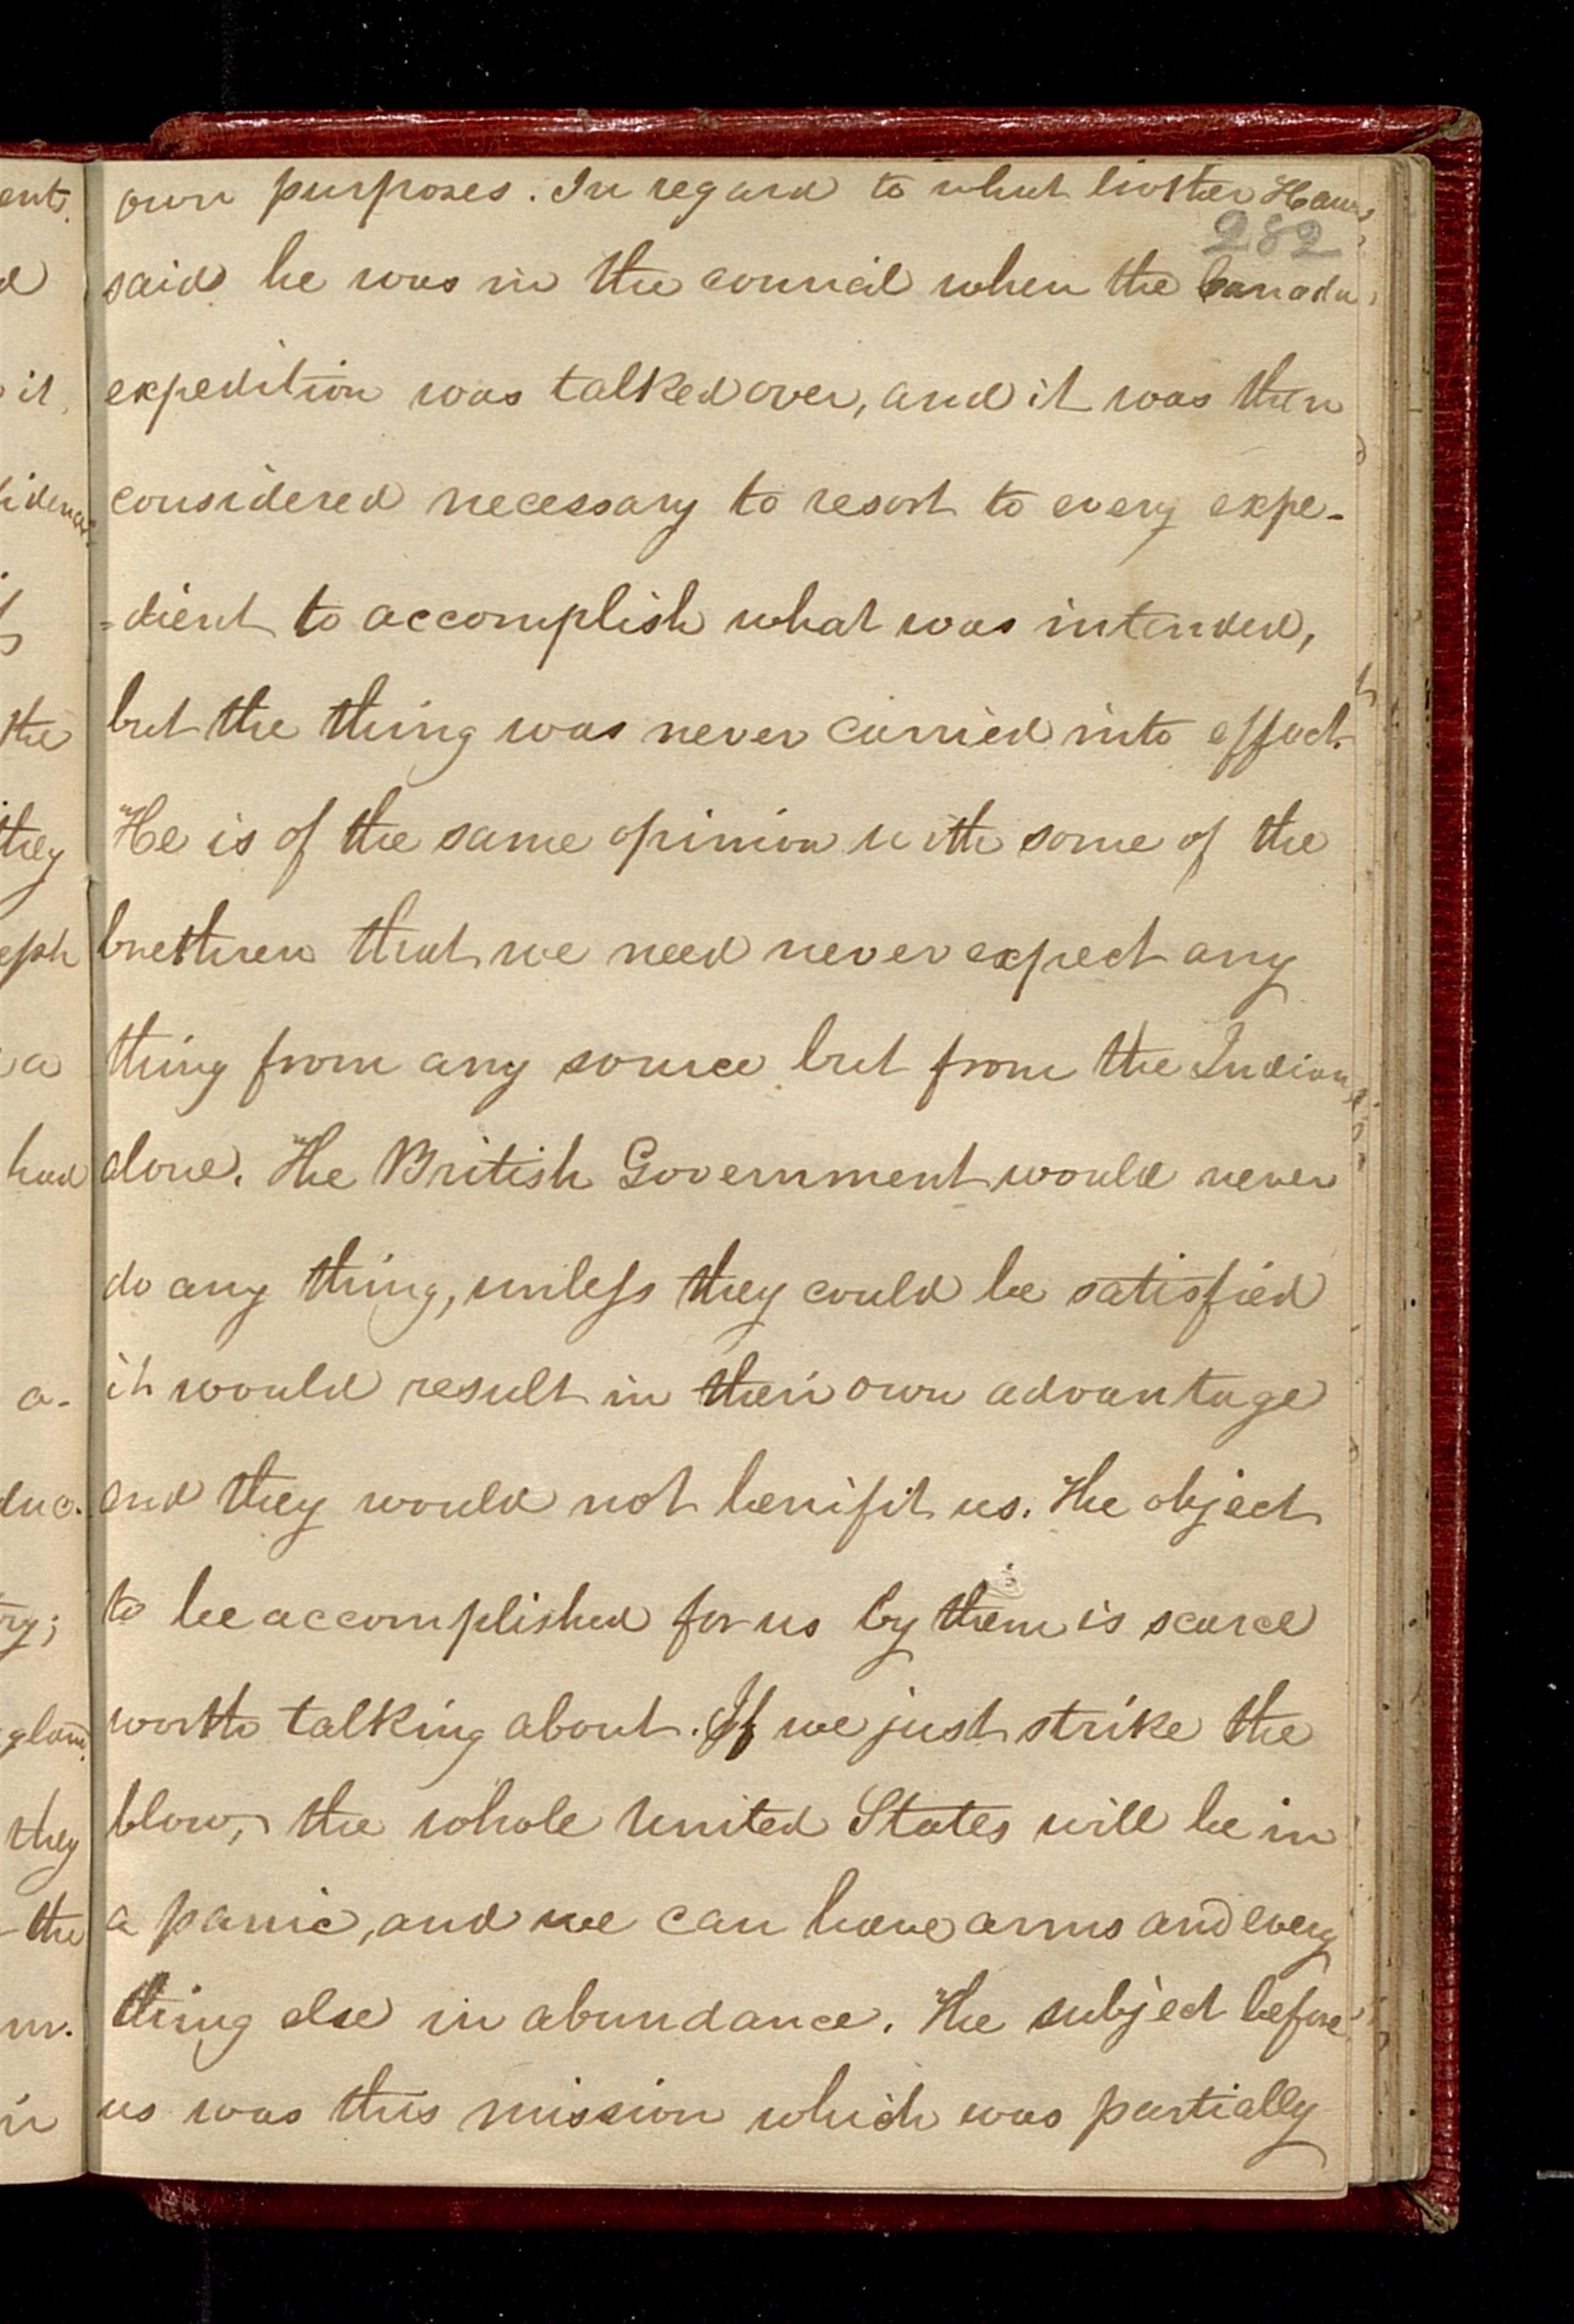 own purposes. In regard to what brother Haws
282
said he was in the council when the Canada
expedition was talked over, and it was then
considered necessary to resort to every expe-
=dient to accomplish what was intended,
but the thing was never carried into effect.
He is of the same opinion with some of the
brethren that we need never expect any
thing from any source but from the Indians
alone. The British Government would never
do any thing, unless they could be satisfied
it would result in their own advantage
and they would not benifit us. The object
to be accomplished for us by them is scarce
worth talking about. If we just strike the
blow, the whole United States will be in
a panic, and we can have arms and every
thing else in abundance. The subject before
us was this mission which was partially